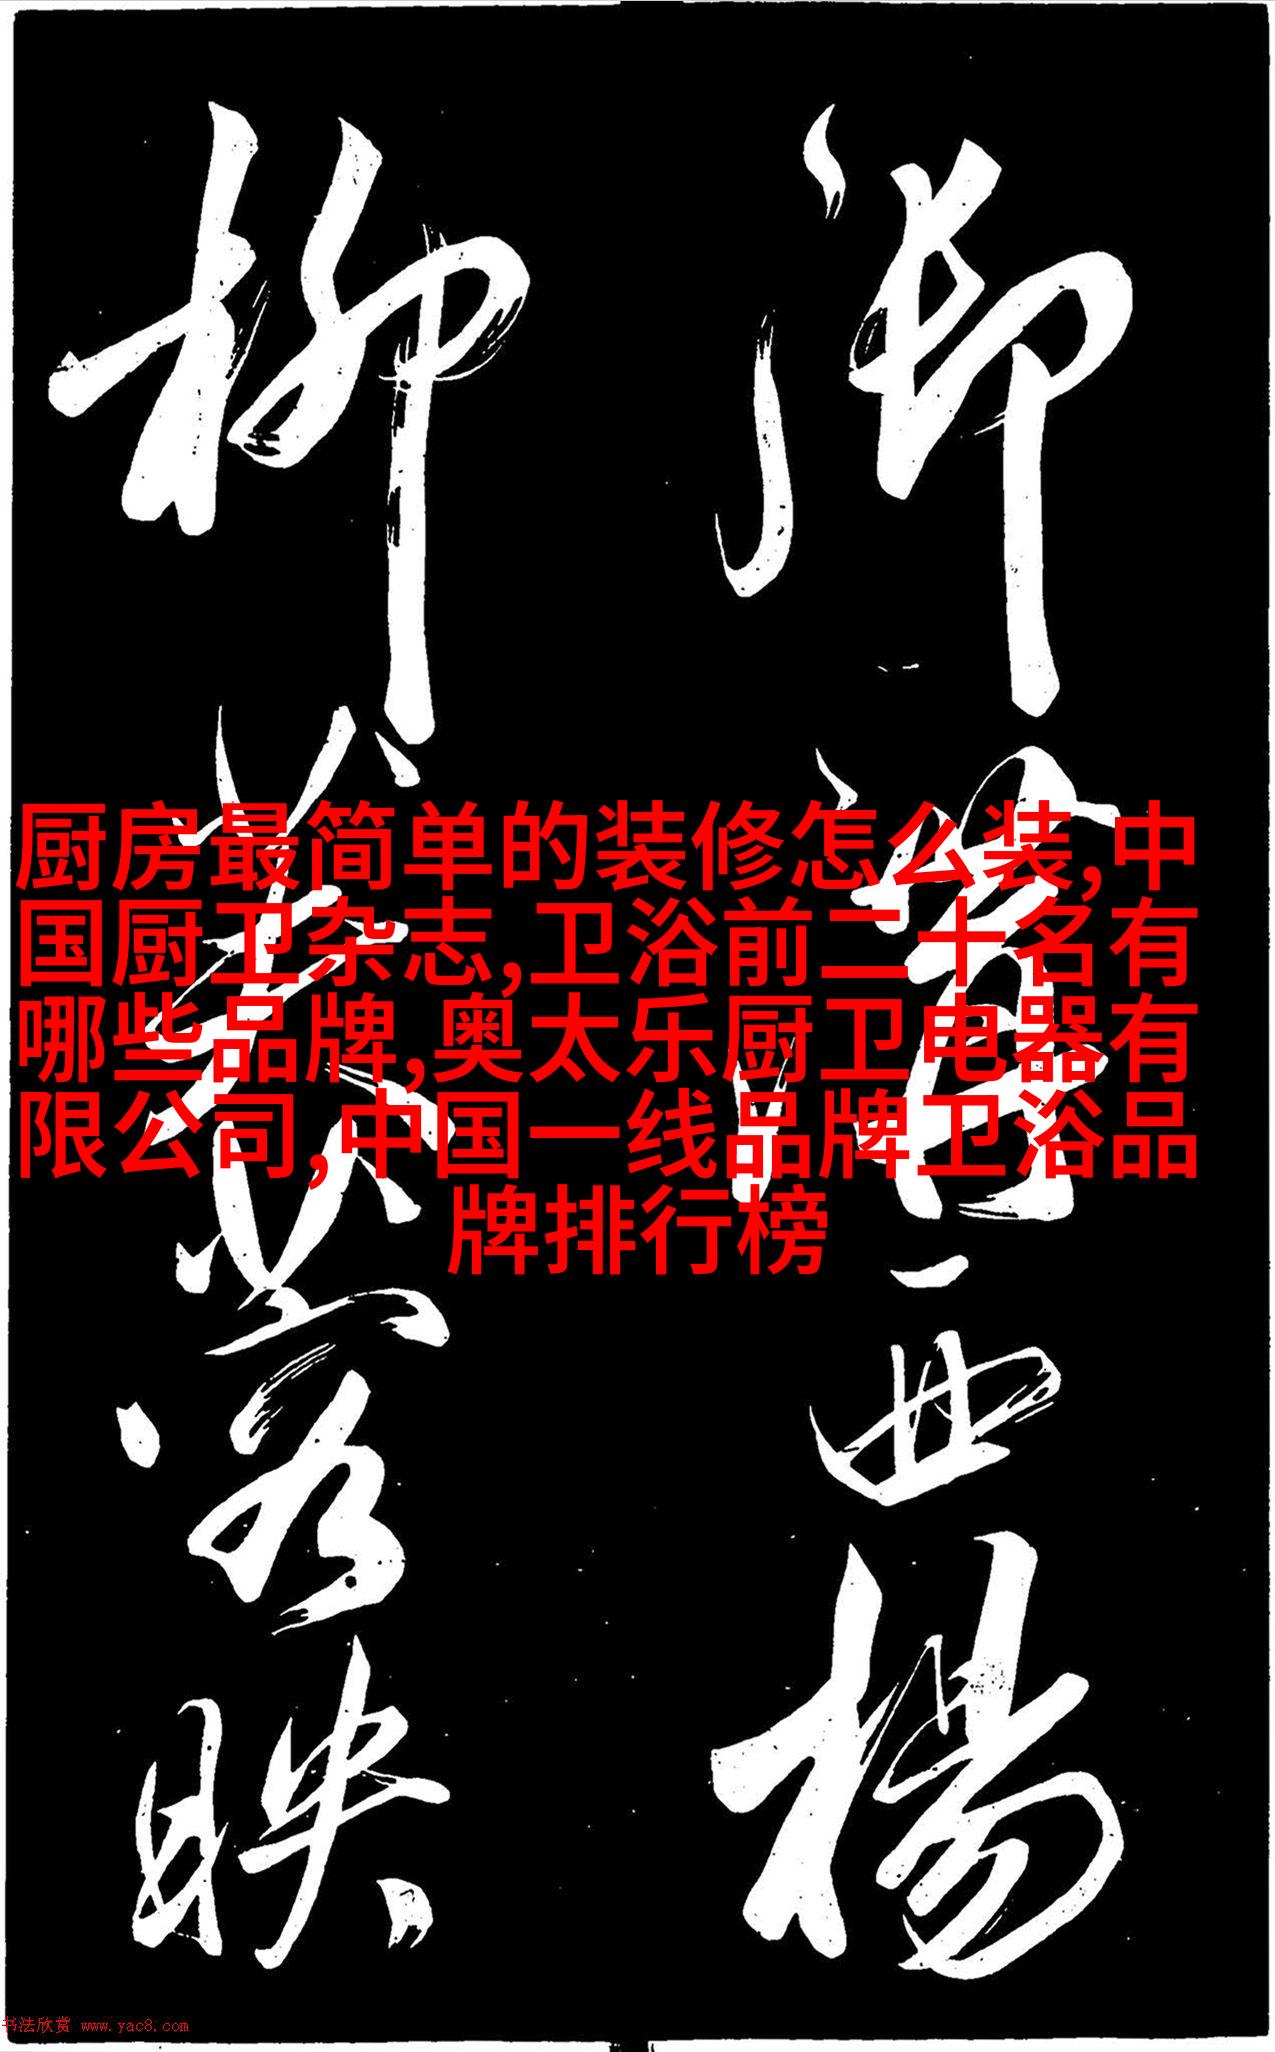 御西楊
柳芙蓉映
厨房最简单的装修怎么装,中
国厨卫杂志,卫浴前二十名有
哪些品牌,奥太乐厨卫电器有
限公司,中国一线品牌卫浴品
牌排行榜
书法欣赏 www.yac8.com